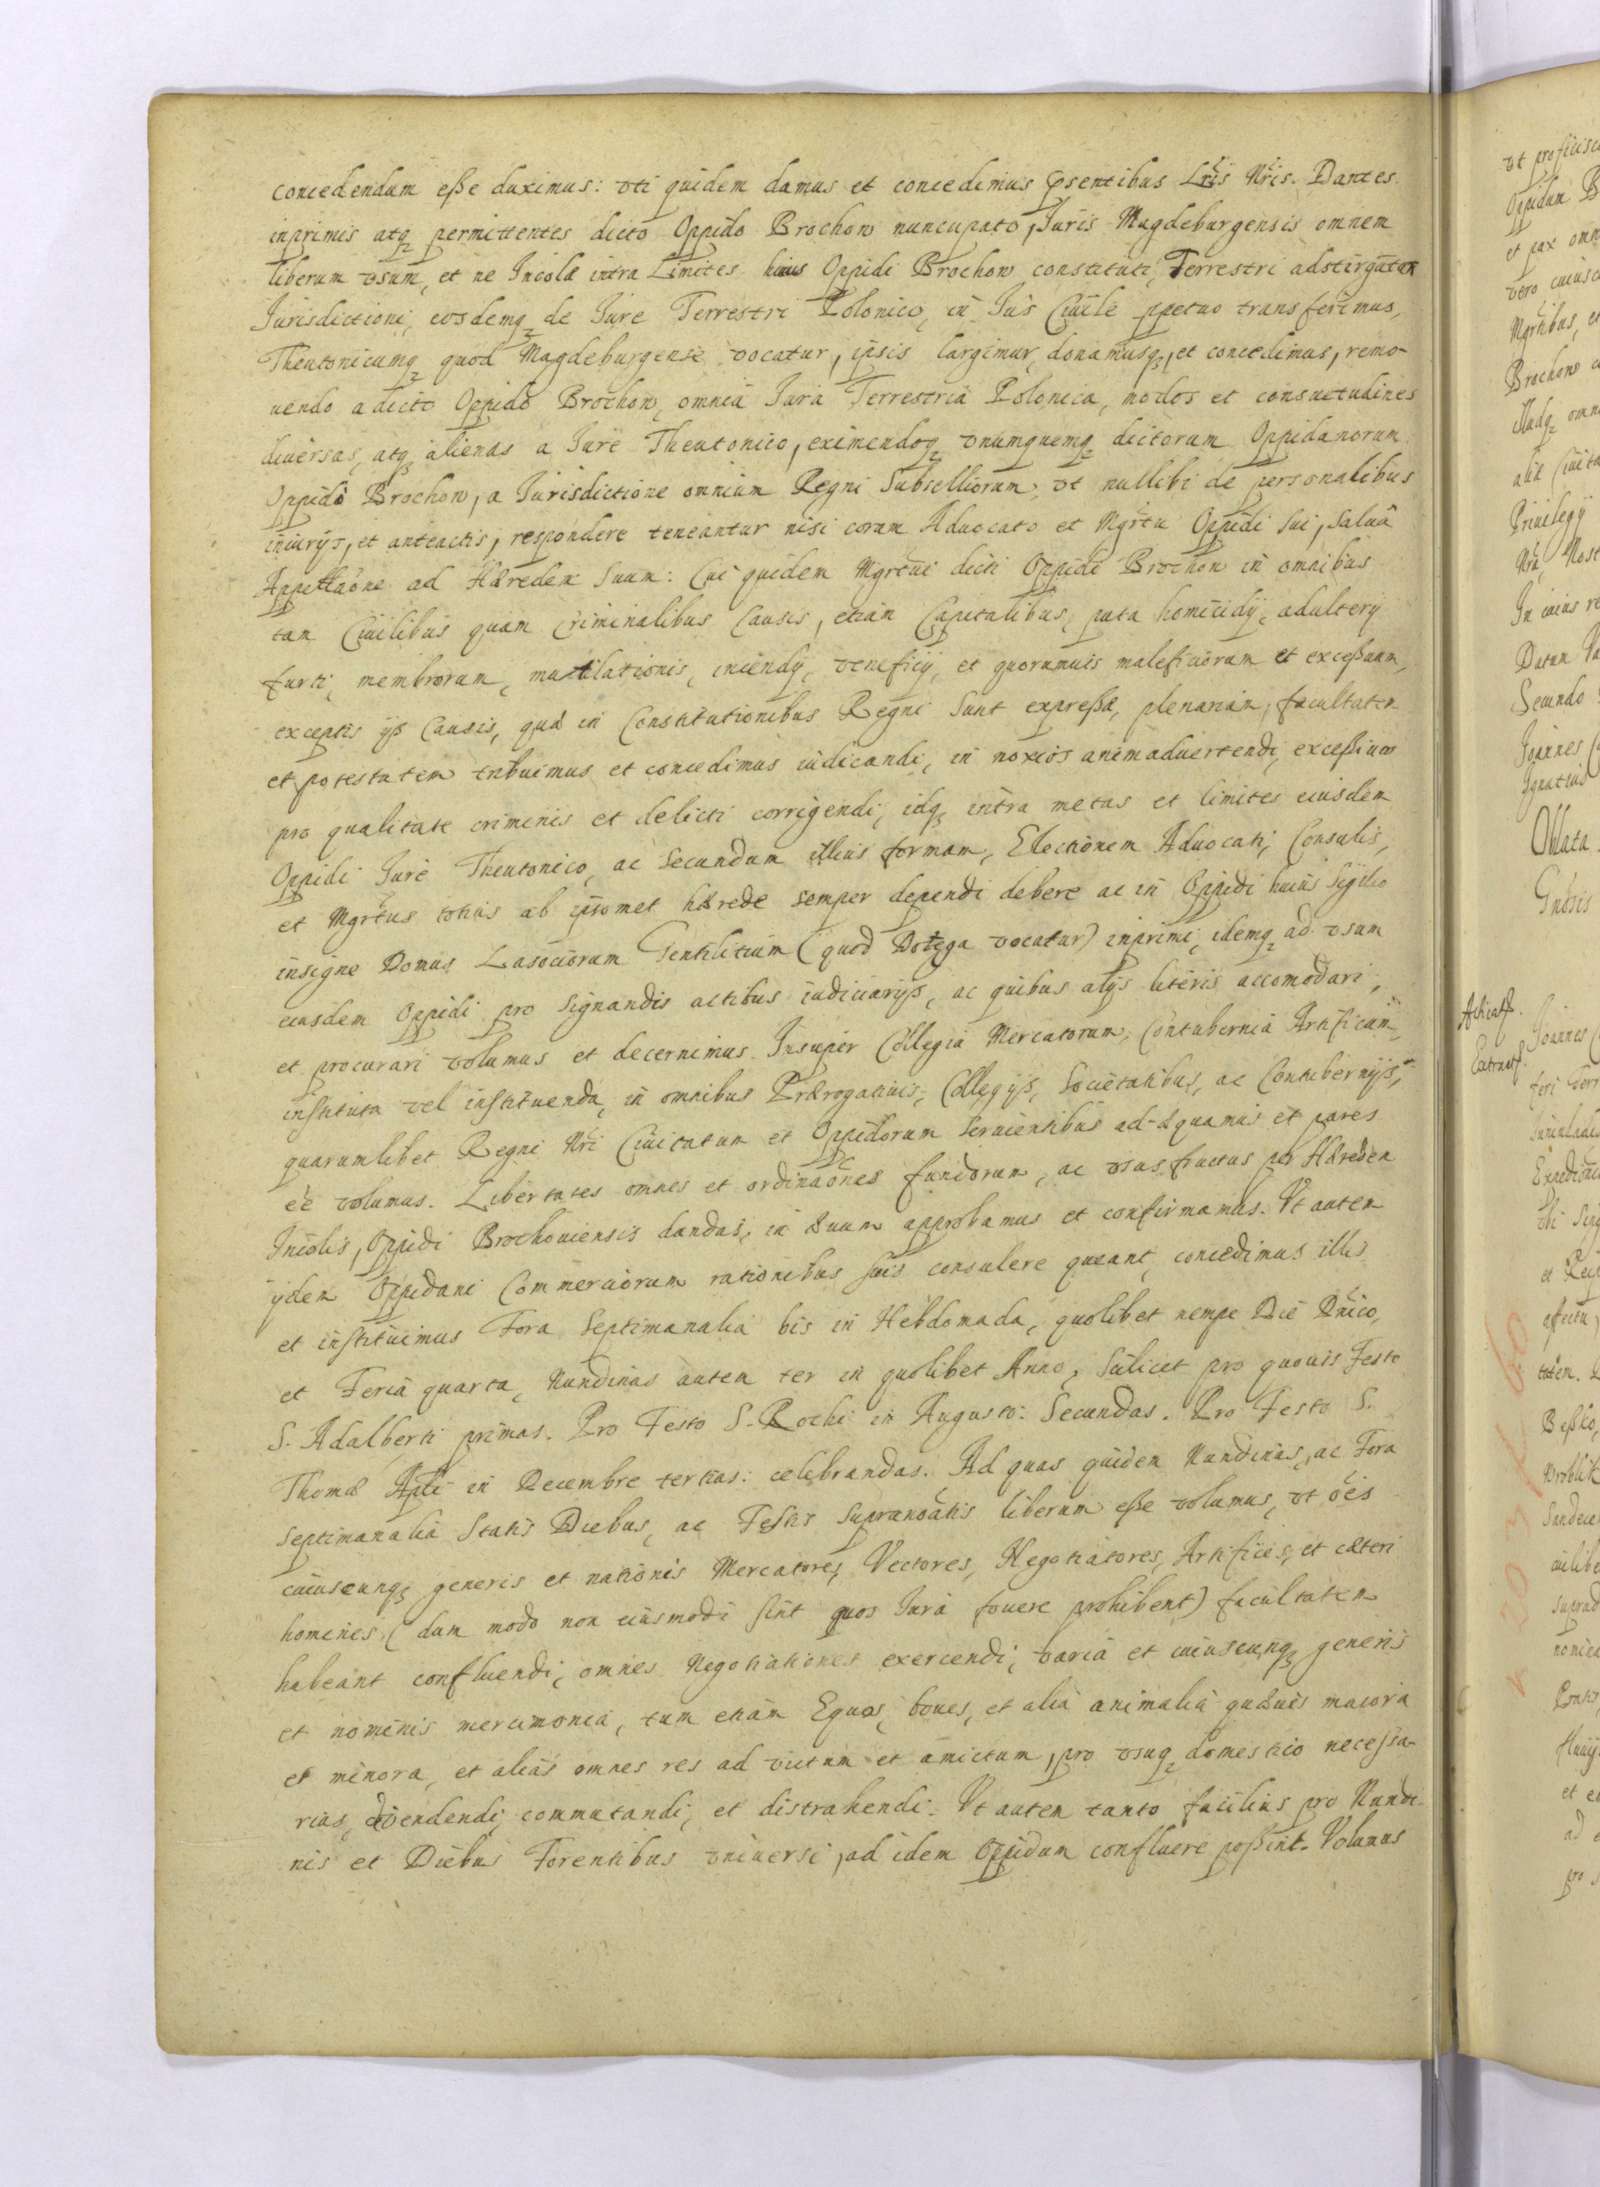 concedendum eße duximus: vti quidem damus et concedimus p̃sentibus Lr̃is Nr̃is. Dantes
inprimis atq₃ permittentes dicto Oppido Brochow nuncupato, Juris Magdeburgensis omnem
liberum vsum, et ne Incolæ intra Limites huius Oppidi Brochow constituti, Terrestri adstringātur
Jurisdictioni, eosdemq₃ de Jure Terrestri Polonico, in Jus Ciuile ppetuo transferimus,
Theutonicumq₃ quod Magdeburgense vocatur, ipsis largimur, donamusq₃, et concedimus, remo-
uendo a dicto Oppido Brochow, omnia Jura Terrestria Polonica, modos et consuetudines
diuersas, atq₃ alienas a Jure Theutonico, eximendoq₃ vnumquemq₃ dictorum Oppidanorum
Oppidi Brochow, a Jurisdictione omnium Regni Subselliorum, vt nullibi de personalibus
iniurijs, et anteactis, respondere teneantur nisi coram Aduocato et Mgr̃tu Oppidi sui, salua
Appellaõne ad Hæredem Suum: Cui quidem Mgr̃tui dicti Oppidi Brochow in omnibus
tam Ciuilibus quam Criminalibus Causis, etiam Capitalibus, puta homicidij, adulterij
furti, membrorum, mutilationis, incendij, veneficij, et quorumuis maleficiorum et exceßuum,
exceptis ijs Causis, quæ in Constitutionibus Regni sunt expreßæ, plenariam, facultatem
et potestatem tribuimus et concedimus iudicandi, in noxios animaduertendi, exceßiuos
pro qualitate criminis et delicti corrigendi, idq₃ intra metas et limites eiusdem
Oppidi Jure Theutonico, ac secundum illius formam, Electionem Aduocati, Consulis,
et Mgr̃tus totius ab ipsomet hærede semper dependi debere ac in Oppidi huius Sigillo
insigne Domus Lasociorum Gentilitium (quod Dołęga vocatur) inprimi, idemq₃ ad vsum
eiusdem Oppidi pro signandis actibus iudiciarijs, ac quibus alijs literis accomodari,
et procurari volumus et decernimus. Insuper Collegia Mercatorum, Contubernia Artificum,
instituta vel instituenda, in omnibus Prærogatiuis, Collegijs, Societatibus, ac Contubernijs,
quarumlibet Regni Nr̃i Ciuitatum et Oppidorum seruientibus ad-æquamus et pares
eẽ volumus. Libertates omnes et ordinaõnes fundorum, ac vsusfructus per Hæredem
Incolis, Oppidi Brochouiensis dandas, in æuum approbamus et confirmamus. Vt autem
ijdem Oppidani Commerciorum rationibus suis consulere queant, concedimus illis
et instituimus Fora Septimanalia bis in Hebdomada, quolibet nempe Die Dñico,
et Feria quarta, Nundinas autem ter in quolibet Anno, Scilicet pro quouis Festo
S. Adalberti primas. Pro Festo S. Rochi in Augusto: Secundas. Pro Festo S.
Thomæ Apli in Decembre tertias: celebrandas. Ad quas quidem Nundinas, ac Fora
Septimanalia Statis Diebus, ac Festis supranoatis liberum eße volumus, vt oẽs
cuiuscunq₃ generis et nationis Mercatores, Vectores, Negotiatores, Artifices, et cæteri
homines, (dum modo non eiusmodi sint quos Jura fouere prohibent) facultatem
habeant confluendi, omnes Negotiationes exercendi, varia et cuiuscunq₃ generis
et nominis mercimonia, tum etiam Equos, boues, et alia animalia quæuis maiora
et minora, et alias omnes res ad victum et amictum, pro vsuq₃ domestico necessa-
rias, diuendendi, commutandi, et distrahendi. Vt autem tanto facilius pro Nundi-
nis et Diebus Forentibus vniuersi, ad idem Oppidum confluere poßint. Volumus
Oppidum B
et pax omn
vero cuiusc
Mgr̃tibus, et
Brochow
illudq₃ omn
Priuilegij
In cuius re
Datum
Secundo
Joannes
Ignatius
Oblata
Joannes